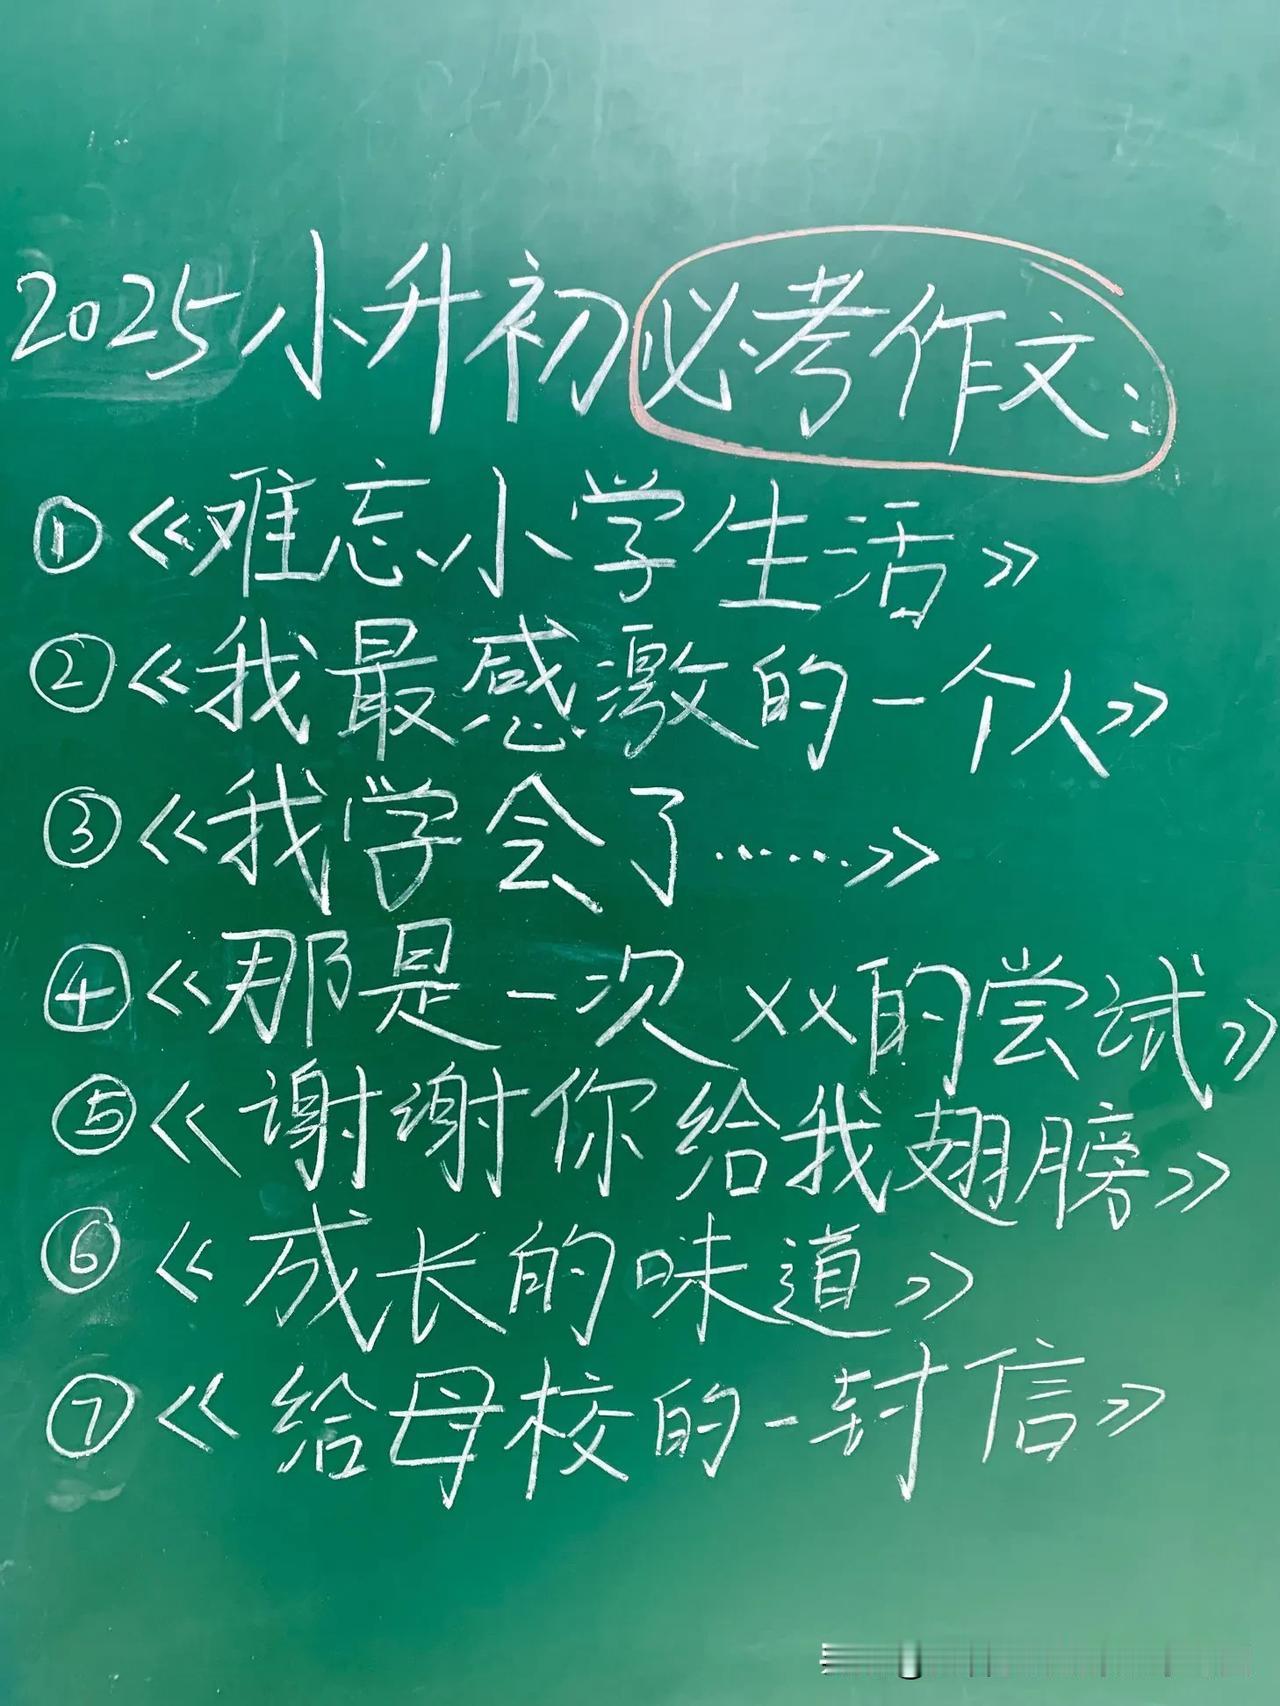 2025小升初必考作文:
①《难忘小学生活》
②《我最感激的一个人》
③《我学会了……》
④《那是一次××的尝试》
⑤《谢谢你给我翅膀》
⑥《成长的味道》
⑦《给母校的一封信》